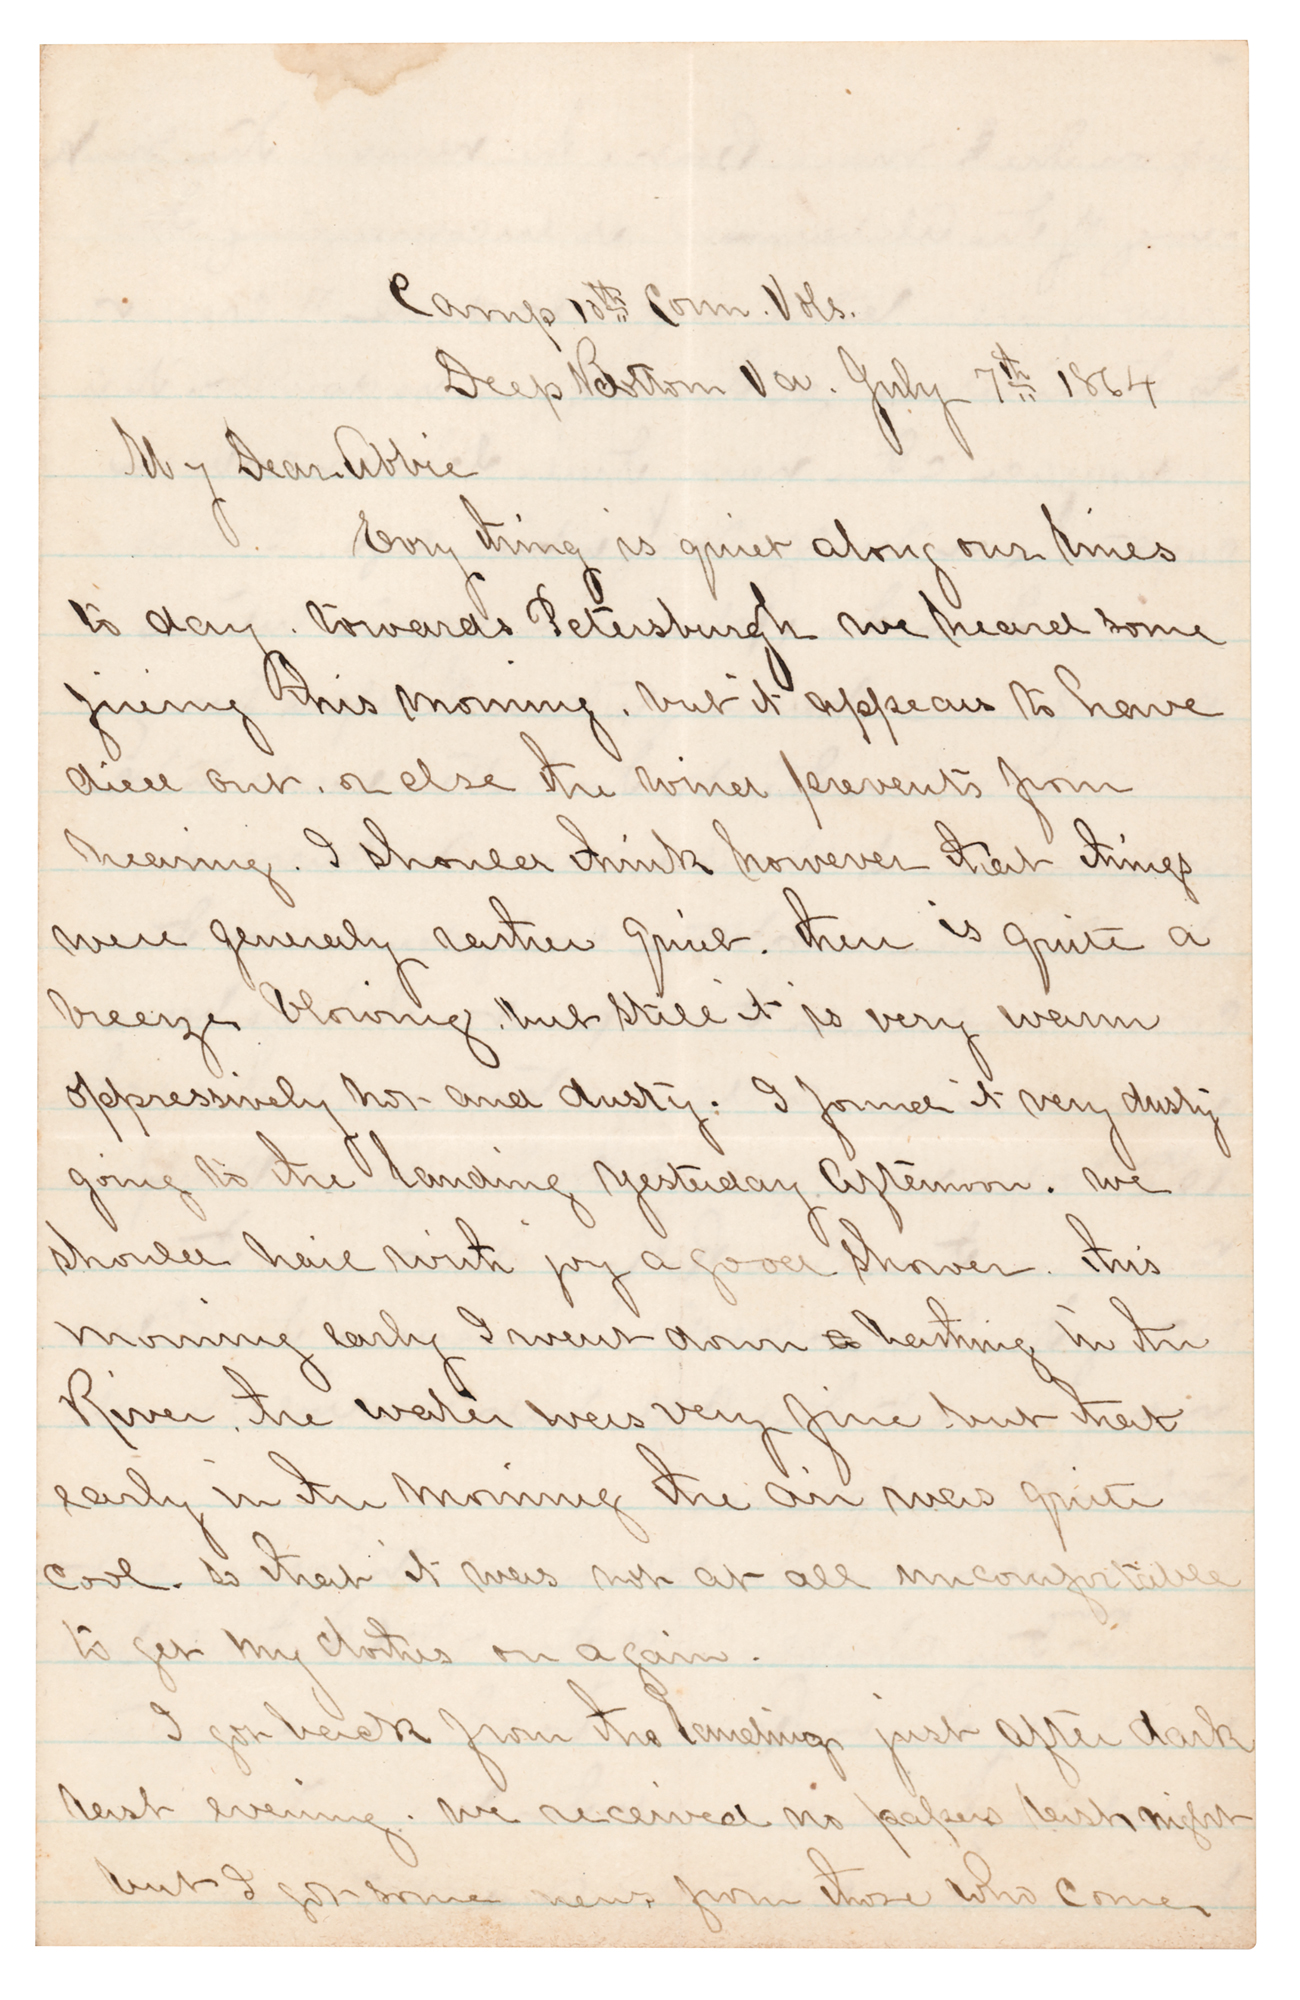 Camp 10th Conn. Vols.
Deep Bottom Va. July 7th 1864
My Dear Abbie
Every thing is quiet along our lines
to day. towards Petersburgh we heard some
fireing this morning, but it appears to have
died out, or else the wind prevents from
hearing. I should think however that things
were generaly rather quiet. there is quite a
breeze blowing, but still it is very warm
oppressively hot and dusty. I found it very dusty
going to the landing yesterday afternoon. we
should hail with joy a good shower. this
morning early I went down bathing in the
River, the water was very fine but that
early in the morning the air was quite
cool. so that it was not at all uncomfortable
to get my clothes on again.
I got back from the landing just after dark
last evening. we received no papers last night
but I got some news from those who come